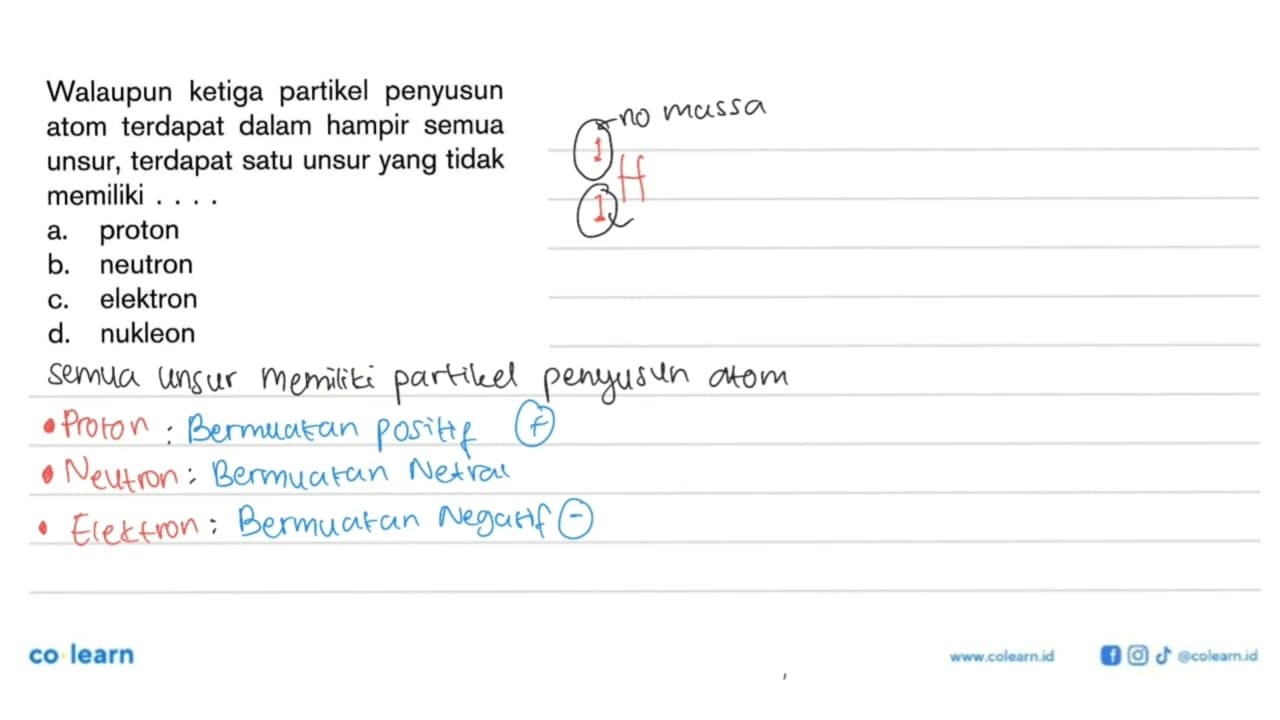 Walaupun ketiga partikel penyusun
atom terdapat dalam hampir semua
unsur, terdapat satu unsur yang tidak
memiliki . . . .
a. proton
b. neutron
c. elektron
d. nukleon
no massa
1
H
1
semua unsur memiliki partikel penyusun atom
• Proton : Bermuatan positif +
• Neutron : Bermuatan Netral
• Elektron : Bermuatan Negatif -
co learn
www.colearn.id
@colearn.id